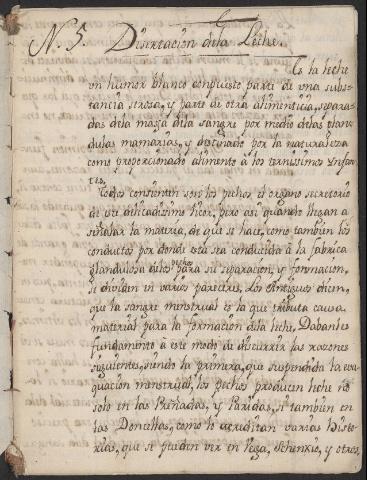 N. 5. Disertacion dela Leche.
Es la leche
un humor blanco compuesto parte de una subs-
tancia serosa, y parte de otra alimenticia, separa-
das dela masa dela sangre por medio delas glan-
dulas mamarias, y destinado por la naturaleza
como proporcionado alimento à los ternisimos Ynfan-
tes.
Todos consienten son los pechos el organo secretorio
de este delicadisimo licor, pero asi quando llegan a
señalar la materia, de que se hace, como tambien los
conductos por donde esta sea conducida à la fabrica
glandulosa delos pechos para su separacion, y formacion,
se dividen en varios pareceres. Los Antiguos dicen,
que la sangre menstrual es la que tributa causa
material para la formacion dela leche, Dabanles
fundamento à este modo de discurrir las razones
siguientes, siendo la primera, que suspendida la eva-
quacion menstrual, los pechos producen leche no
solo en las Preñadas, y Paridas, si tambien en
las Doncellas, como lo acreditan varias Histo-
rias, que se pueden ver en Vega, Schenkio, y otros,